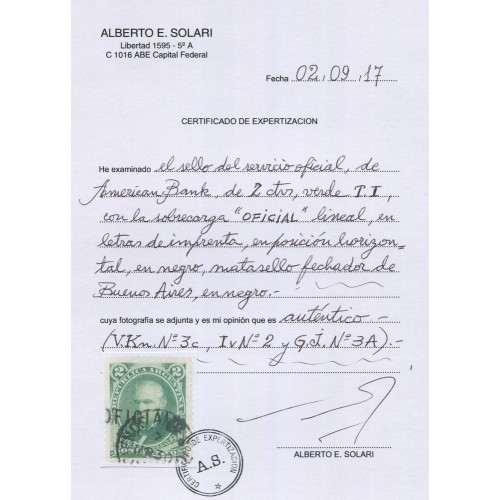 ALBERTO E. SOLARI
Libertad 1595 - 5º A
C 1016 ABE Capital Federal
Fecha 02, 09, 17
CERTIFICADO DE EXPERTIZACION
He examinado el sello del servicio oficial, de
American Bank, de 2 ctvs, verde T.I,
con la sobrecarga "OFICIAL" lineal, en
letras de imprenta, en posición horizon=
tal, en negro, matasello fechador de
Buenos Aires, en negro.-
cuya fotografía se adjunta y es mi opinión que es auténtico.-
(V.Kn. Nº3c, Iv Nº2 y G.J. Nº3A).-
2 REPUBLICA ARGENTINA 2
OFICIAL
CERTIFICADO DE EXPERTIZACION
A.S.
ALBERTO E. SOLARI